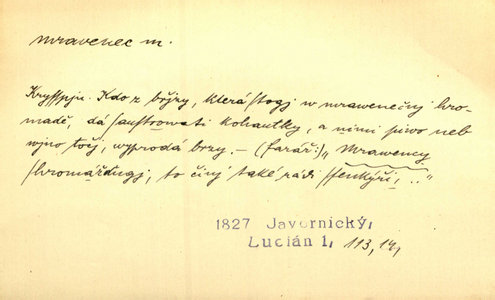 mravenec m.
Krysspjn. Kdo z břjzy, která stogj w mrawenečný hro-
madě, dá saustrowati kohautky, a njmi piwo neb
wjno točj, wyprodá brzy. – (farář:) „Mrawency
shromažďugj, to činj také rádi ssenkýři, ..."
1827 Javornický,
Lucián 1, 113, 14,